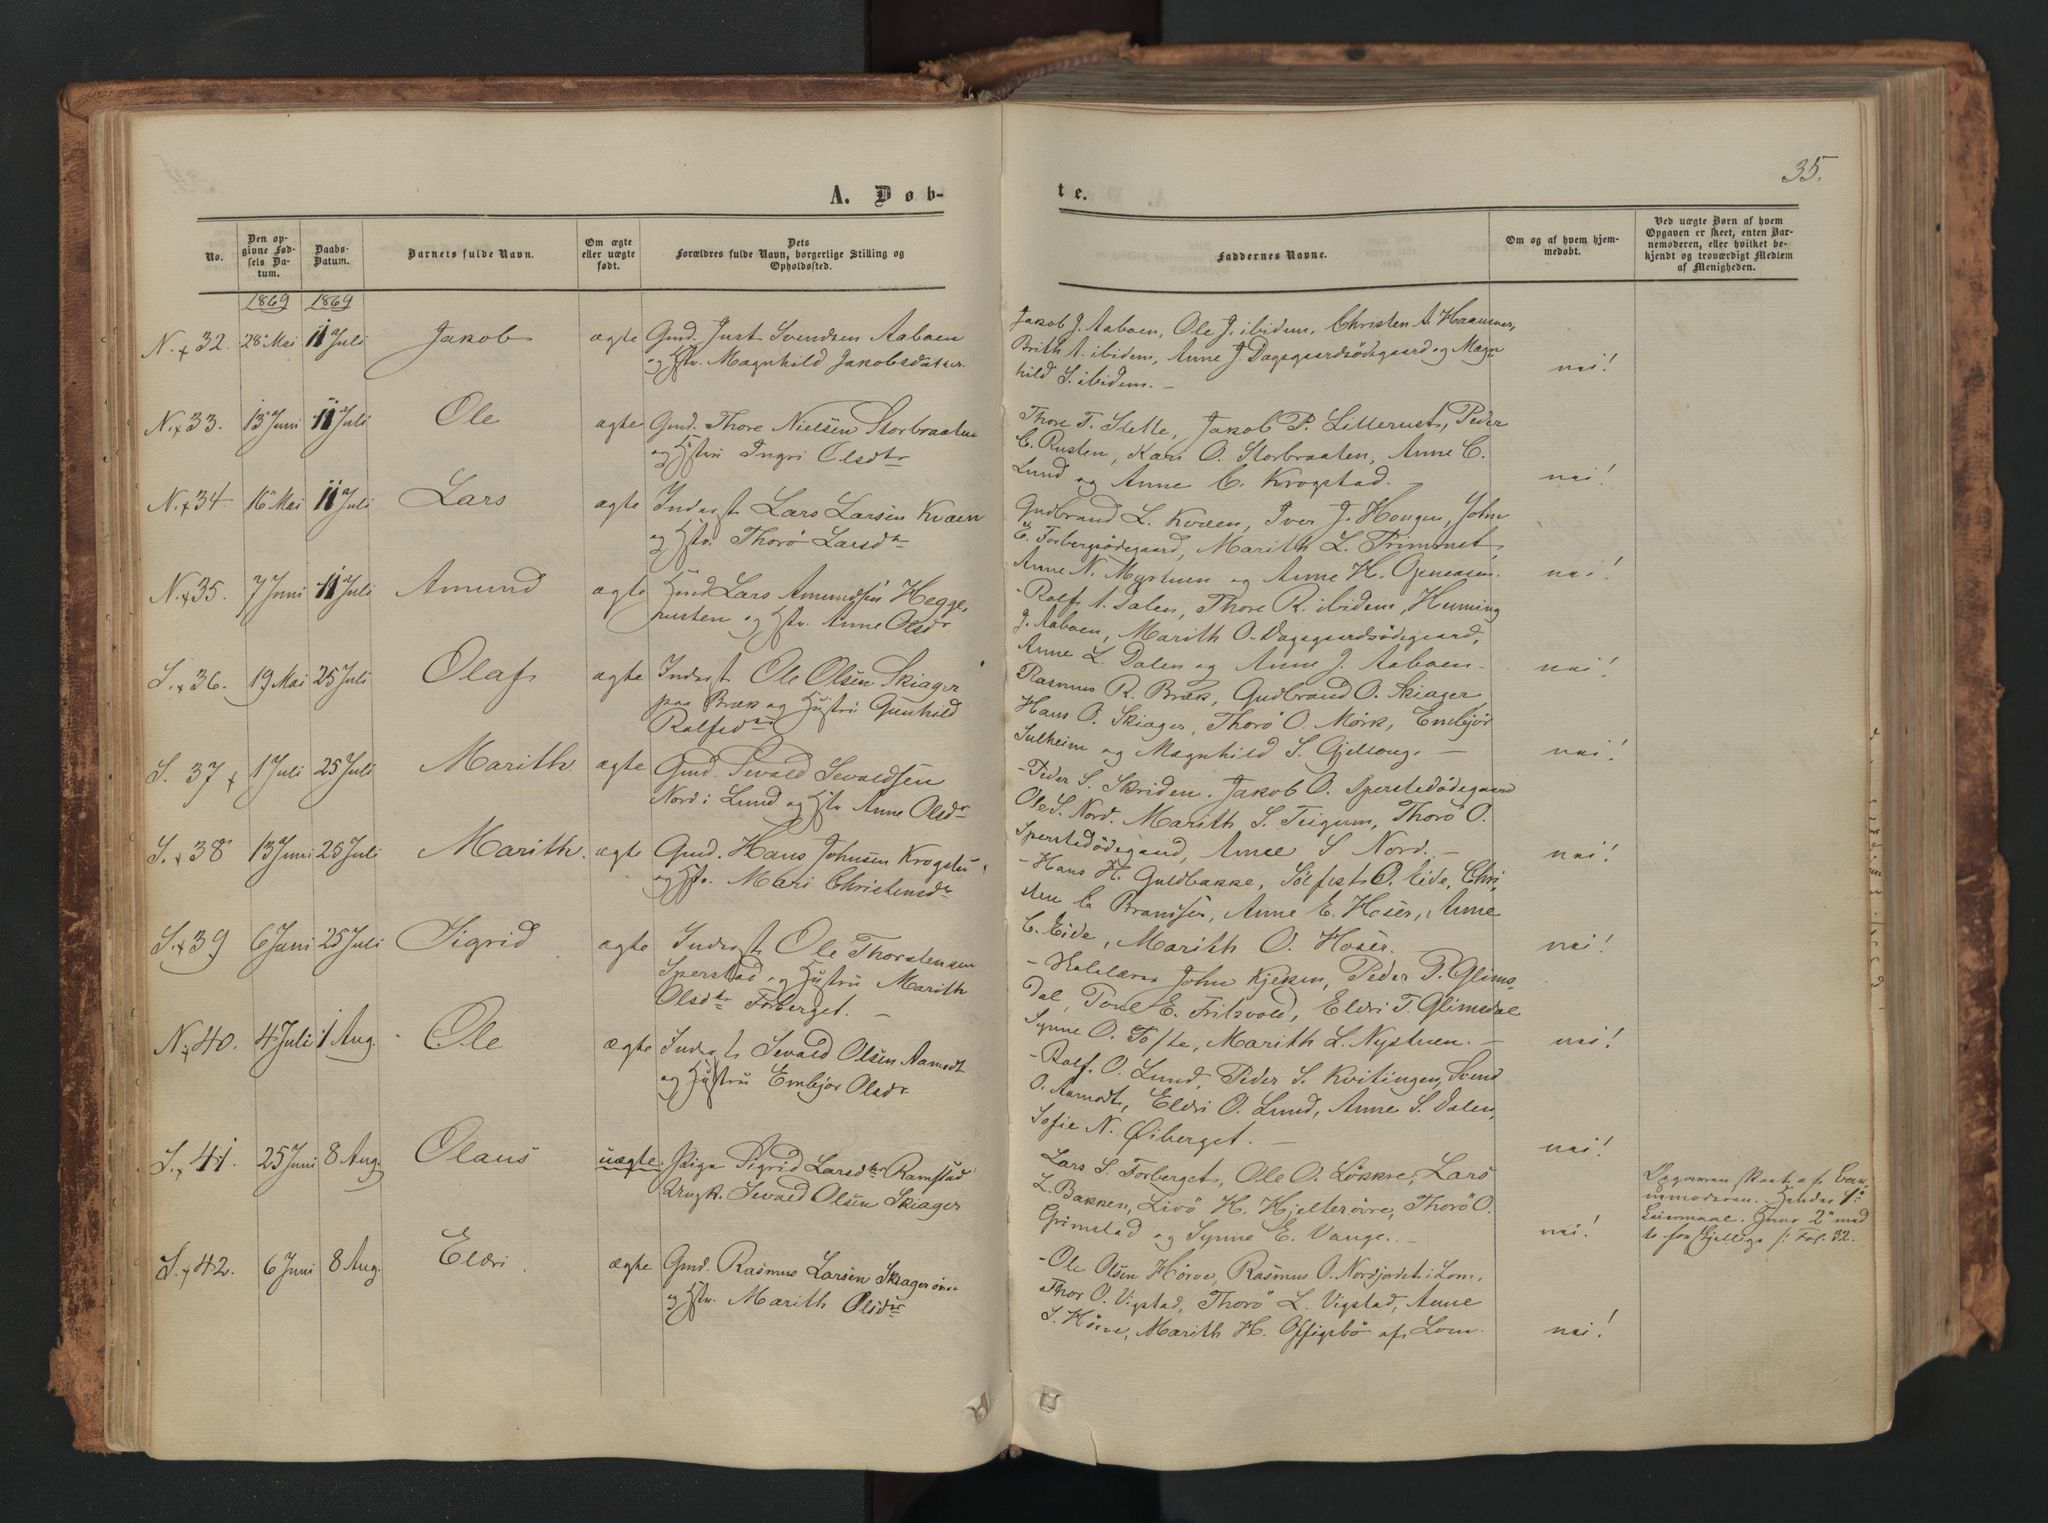 35.
A. Døb-
te.
No.
Den op-
givne Fød-
sels Da-
tum.
Daabs-
Datum.
Barnets fulde Navn.
Om ægte
eller uægte
født.
Dets
Forældres fulde Navn, borgerlige Stilling og
Opholdsted.
Faddernes Navne.
Om og af hvem hjem-
medøbt.
Ved uægte Børn af hvem
Opgaven er skeet, enten Bar-
nemoderen, eller hvilket be-
kjendt og troværdigt Medlem
af Menigheden.
1869 1869
N. 32. 28 Mai 11 Juli Jakob ægte Gmd. Just Svendsen Aaboen
og Hstr. Magnhild Jakobsdatter.
Jakob J. Aaboen, Ole J. ibidem, Christen A.
Brith A. ibidem, Anne J. Dagsgaardsødegaard og Magn-
hild S. ibidem. —
nei!
N. 33. 13 Juni 11 Juli Ole ægte Gmd. Thore Nielsen Storbraaten
og Hstru Ingri Olsdtr
Thore T. Slette, Jakob P. Lillerust, Peder
C. Rusten, Kari O. Storbraaten, Anne C.
Lund og Anne C. Krogstad. —
nei!
N. 34. 16 Mai 11 Juli Lars ægte Inderst Lars Larsen Kvæen
og Hstr. Thorø Larsdtr
Gudbrand L. Kvæen, Iver J. Hougen, John
E. Forbergsødegaard, Marith L. Frimmet,
Anne N. Mystuen og Anne H.
nei!
N. 35. 7 Juni 11 Juli Amund ægte Lars Amundsen Hegge-
pusten og Hstr. Anne Olsdtr
- Rolf A. Dalen, Thore R. ibidem, Huming
J. Aaboen, Marith O. Dagsgaardsødegaard,
Anne L. Dalen og Anne J. Aaboen.
nei!
S. 36. 19 Mai 25 Juli Olaf ægte Inderst Ole Olsen Skiager
paa Bræk og Hustru Gunhild
Rolfsdtr
Rasmus R. Bræk, Gudbrand O. Skiager
Hans O. Skiager, Thorø O. Mørk, Embjør
Sulheim og Magnhild S. Gjellong. —
nei!
S. 37 1 Juli 25 Juli Marith. ægte Gmd. Sevald Sevaldsen
Nord i Lund og Hstr Anne Olsdtr
- Peder S. Skriden, Jakob O. Sperstedødegaard
Ole S. Nord. Marith S. Teigum, Thorø O.
Sperstadødegaard, Anne S Nord. —
nei!
S. 38 13 Juni 25 Juli Marith. ægte Gmd. Hans Johnsen
og Hstr. Mari Christensdtr
- Hans H. Guldbakke, Sølfest O. Eide, Chri-
sten C. Anne E. Hoser, Anne
C. Eide, Marith O. Hoser. —
nei!
S. 39 6 Juni 25 Juli Sigrid ægte Inderst Ole Thorstensen
Sperstad og Hustru Marith
Olsdtr Forberget. —
- John Kjeken, Peder P. Glims-
dal, Tone E. Fritzvold, Eldri T. Glimsdal
Synne O. Tofte, Marith L. Nystuen. —
nei!
N. 40. 4 Juli 1 Aug. Ole ægte Inderst Sevald Olsen Aamodt
og Hustru Embjør Olsdtr
- Rolf O. Lund, Peder S. Kvitingen, Svend
O. Aamodt, Eldri O. Lund, Anne S. Dalen,
Sofie N. Øiberget. —
nei!
S. 41. 25 Juni 8 Aug. Olaus uægte. Pige Sigrid Larsdtr Ramstad
Ungk. Sevald Olsen Skiager
Lars S. Forberget, Ole O. Løkkre, Lars
L. Bakken, Livø H. Hjelterøire, Thorø O.
Grimstad og Synne E. Vange. —
nei!
Opgaven skeet af Bar-
nemoderen. Hendes 1ste
Leiermaal. Hans 2det med
to fra Fol. 32.
S. 42. 6 Juni 8 Aug. Eldri. ægte Gmd. Rasmus Larsen
og Hstr. Marith Olsdtr
- Ole Olsen Hørve, Rasmus O. Nordjordet i Lom.
Thor O. Vigstad, Thorø L. Vigstad, Anne
S. Hørve, Marith H. Offigsbø af Lom.
nei!